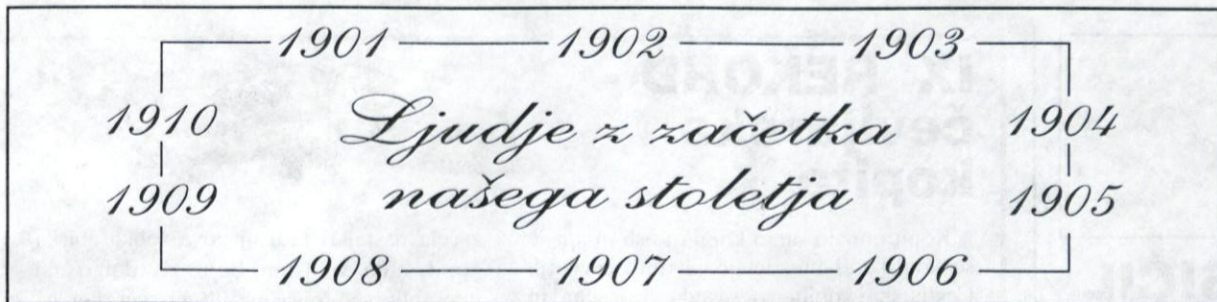 1901 1902 1903
1910 Ljudje z začetka 1904
1909 našega stoletja 1905
1908 1907 1906